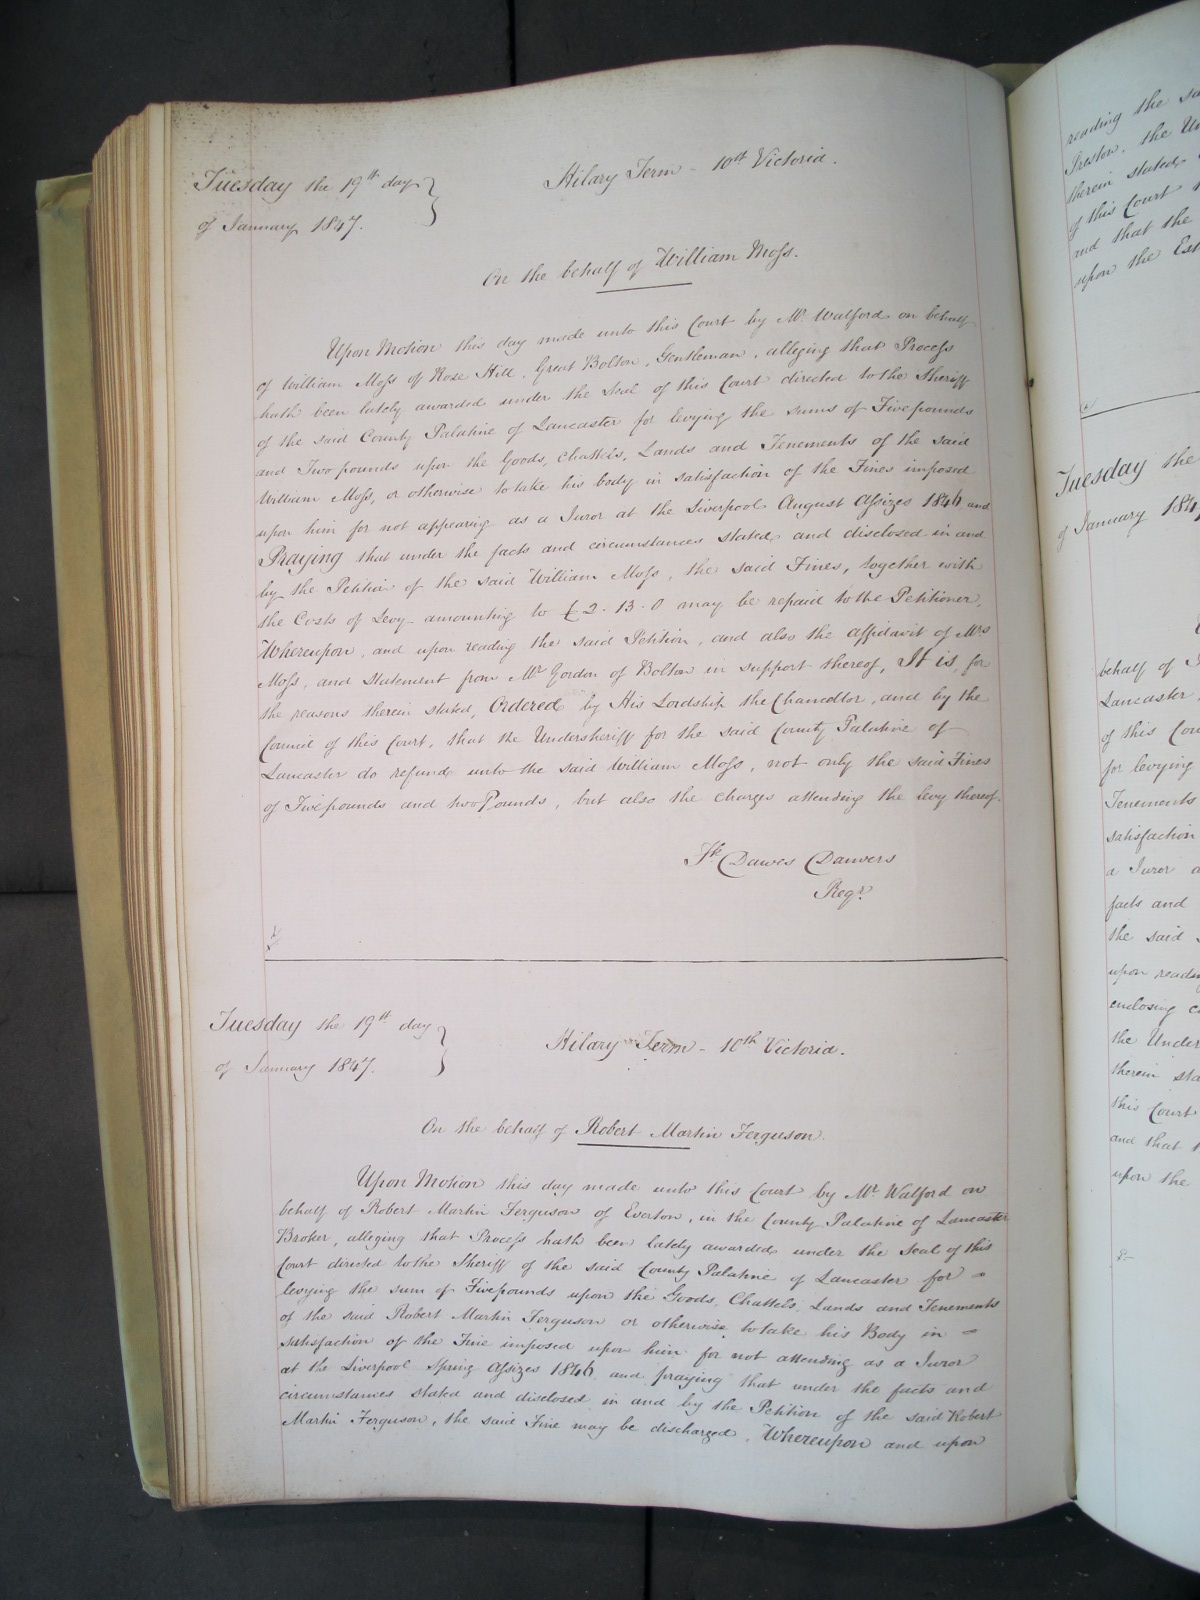 Tuesday the 19th day
of January 1847.
Hilary Term - 10th Victoria.
On the behalf of William Moss.
Upon Motion this day made unto this Court by Mr. Walford on behalf
of William Moss of Rose Hill, Great Bolton, Gentleman, alleging that Process
hath been lately awarded under the Seal of this Court directed to the Sheriff
of the said County Palatine of Lancaster for levying the sums of Five pounds
and Two pounds upon the Goods, Chattels, Lands and Tenements of the said
William Moss, or otherwise to take his body in satisfaction of the Fines imposed
upon him for not appearing as a Juror at the Liverpool August Assizes 1846, and
Praying that under the facts and circumstances stated and disclosed in and
by the Petition of the said William Moss, the said Fines, together with
the Costs of Levy amounting to £2.13.0 may be repaid to the Petitioner,
Whereupon, and upon reading the said Petition, and also the affidavit of Mrs
Moss, and statement from Mr Gordon of Bolton in support thereof, It is, for
the reasons therein stated, Ordered by His Lordship the Chancellor, and by the
Council of this Court, that the Undersheriff for the said County Palatine of
Lancaster do refund unto the said William Moss, not only the said Fines
of Five pounds and two Pounds, but also the charges attending the levy thereof.
Fk Dawes Danvers
Regr.
Tuesday the 19th day
of January 1847.
Hilary Term - 10th Victoria.
On the behalf of Robert Martin Ferguson.
Upon Motion this day made unto this Court by Mr. Walford on
behalf of Robert Martin Ferguson of Everton, in the County Palatine of Lancaster
Broker, alleging that Process hath been lately awarded under the Seal of this
Court directed to the Sheriff of the said County Palatine of Lancaster for
levying the sum of Five pounds upon the Goods, Chattels, Lands and Tenements
of the said Robert Martin Ferguson or otherwise to take his Body in
satisfaction of the Fine imposed upon him for not attending as a Juror
at the Liverpool Spring Assizes 1846, and praying that under the facts and
circumstances stated and disclosed in and by the Petition of the said Robert
Martin Ferguson, the said Fine may be discharged, Whereupon and upon
reading the
Preston, the
therein stated
of this Court
and that the
upon the
Tuesday the
of January
behalf of
Lancaster
of this
for levying
Tenements
satisfaction
a Juror
facts and
the said
upon
enclosing
the
therein
this Court
and that
upon the